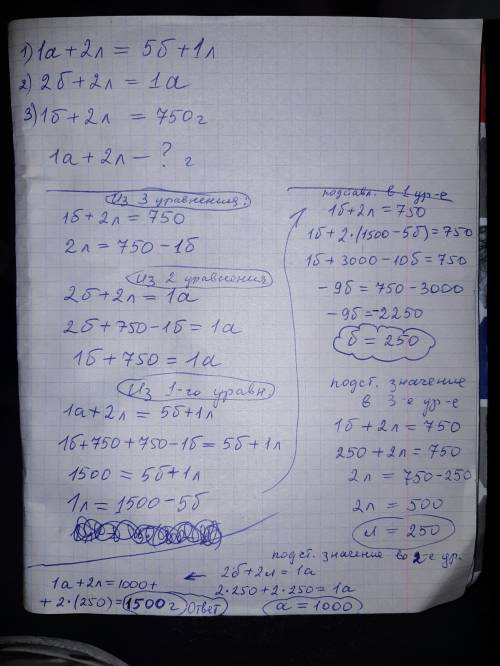 1) 1а + 2л = 5б + 1л
2) 2б + 2л = 1а
3) 1б + 2л = 750 г
1а + 2л - ? г
Из 3 уравнения:
1б + 2л = 750
2л = 750 - 1б
Из 2 уравнения
2б + 2л = 1а
2б + 750 - 1б = 1а
1б + 750 = 1а
Из 1-го уравн.
1а + 2л = 5б + 1л
1б + 750 + 750 - 1б = 5б + 1л
1500 = 5б + 1л
1л = 1500 - 5б
в 1 ур-е
1б + 2л = 750
1б + 2·(1500 - 5б) = 750
1б + 3000 - 10б = 750
- 9б = 750 - 3000
- 9б = -2250
б = 250
подст. значение
в 3-е ур-е
1б + 2л = 750
250 + 2л = 750
2л = 750 - 250
2л = 500
л = 250
подст. значение во 2-е ур.
2б + 2л = 1а
2·250 + 2·250 = 1а
а = 1000
1а + 2л = 1000 +
+ 2·(250) = 1500 г Ответ